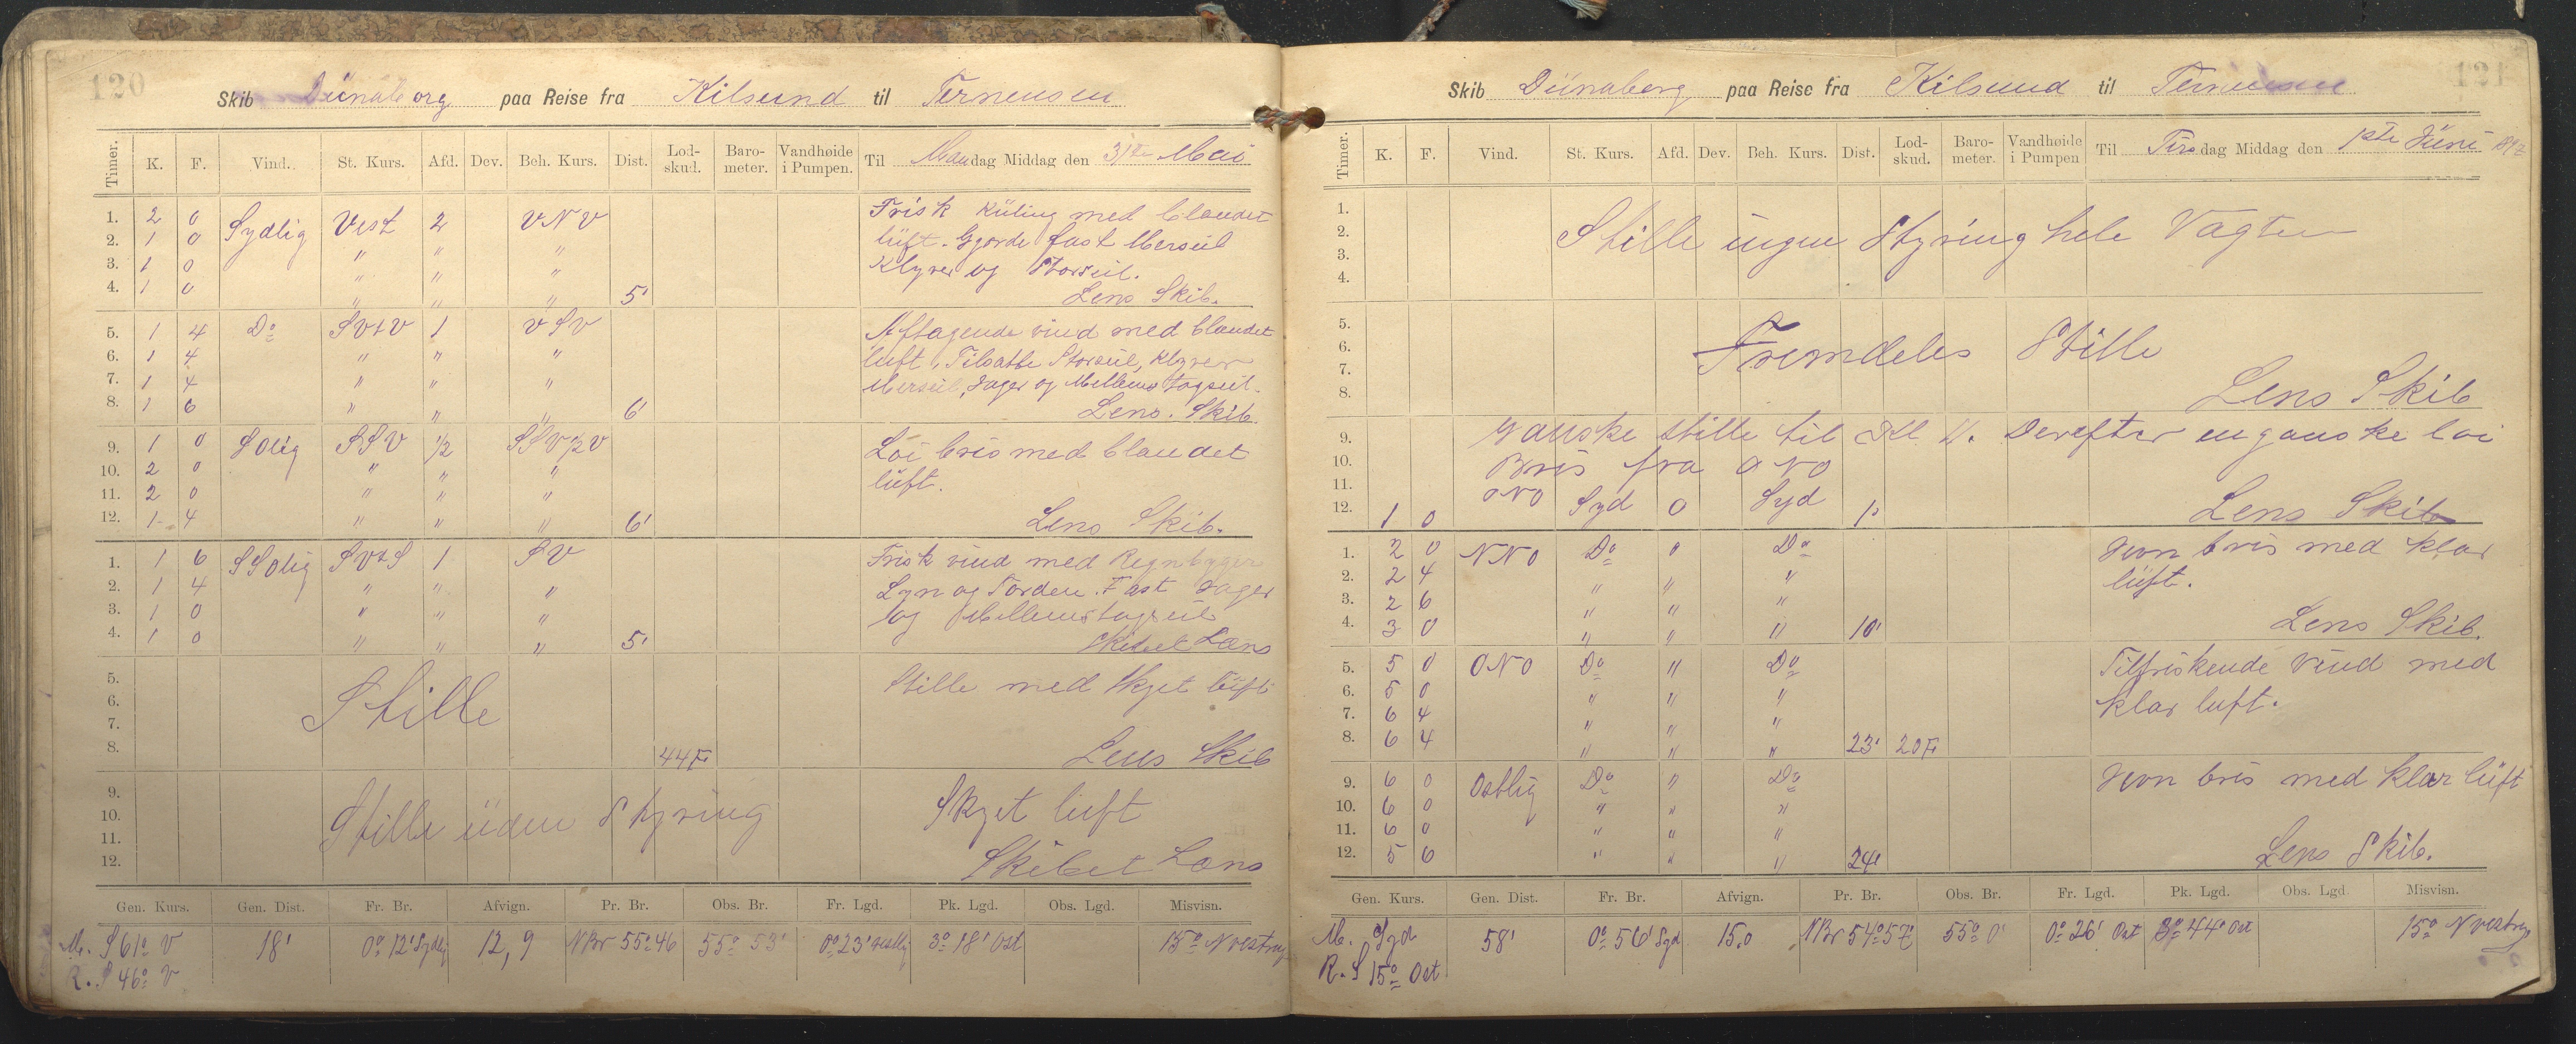 120
Skib Dünaborg paa Reise fra Kilsund til Terneusen
Timer. K. F. Vind. St. Kurs. Afd. Dev. Beh. Kurs. Dist. Lod-skud. Baro-meter. Vandhøide i Pumpen. Til Mandag Middag den 31te Mai
1. 2 0 Sydlig Vest 2 VNV Frisk Küling med blandet
2. 1 0 " " " lüft. Gjorde fast Merseil
3. 1 0 " " " Klyver og Storseil.
4. 1 0 " " " 5' Lens Skib.
5. 1 4 Do SVtV 1 VSV Aftagende vind med blandet
6. 1 4 " " " luft, Tilsatte Storseil, Klyver
7. 1 4 " " " Merseil, Jager og Mellemstagseil.
8. 1 6 " " " 6' Lens. Skib
9. 1 0 SOlig SSV 1/2 SSV1/2V Löi bris med blandet
10. 2 0 " " " lüft.
11. 2 0 " " "
12. 1 4 " " " 6' Lens Skib.
1. 1 6 SSOlig SVtS 1 SV Frisk vind med Regnbyger
2. 1 4 " " " Lyn og Torden. Fast Jager
3. 1 0 " " " og Mellemstagseil
4. 1 0 " " " 5' Skibet Læns
5. Stille Stille med Skyet lüft
6.
7.
8. 44F. Lens Skib
9. Stille üden Styring Skyet luft
10.
11.
12. Skibet Læns
Gen. Kurs. Gen. Dist. Fr. Br. Afvign. Pr. Br. Obs. Br. Fr. Lgd. Pk. Lgd. Obs. Lgd. Misvisn.
M. S 61° V 18' 0° 12' Sydlig 12,9 NBr 55° 46 55° 53' 0° 23' vestlig 3° 18' Ost 15° N vestvis
R. S 46° V
121
Skib Dünaborg paa Reise fra Kilsund til Terneusen
Timer. K. F. Vind. St. Kurs. Afd. Dev. Beh. Kurs. Dist. Lod-skud. Baro-meter. Vandhøide i Pumpen Til Tirsdag Middag den 1ste Jüni 1897
1.
2. Stille ingen Styring hele Vagten
3.
4.
5.
6. Fremdeles Stille
7.
8. Lens Skib
9. Ganske stille til Kl 11. Derefter en ganske löi
10. Bris fra ONO
11.
12. 1 0 ONO Syd 0 Syd 1' Lens Skib
1. 2 0 NNO Do " Do Jevn bris med klar
2. 2 4 " " " lüft.
3. 2 6 " " "
4. 3 0 " " " 10' Lens Skib.
5. 5 0 ONO Do " Do Tilfriskende Vind med
6. 5 0 " " " klar luft.
7. 6 4 " " "
8. 6 4 " " " 23' 20F.
9. 6 0 Ostlig Do " Do Jevn bris med klar lüft
10. 6 0 " " "
11. 6 0 " " "
12. 5 6 " " " 24' Lens Skib.
Gen. Kurs. Gen. Dist. Fr. Br. Afvign. Pr. Br. Obs. Br. Fr. Lgd. Pk. Lgd. Obs. Lgd. Misvisn.
M. Syd 58' 0° 56' Syd 15.0 NBr 54° 57' 55° 0' 0° 26' Ost 3° 44' Ost 15° N vestvis
R. S 15° Ost